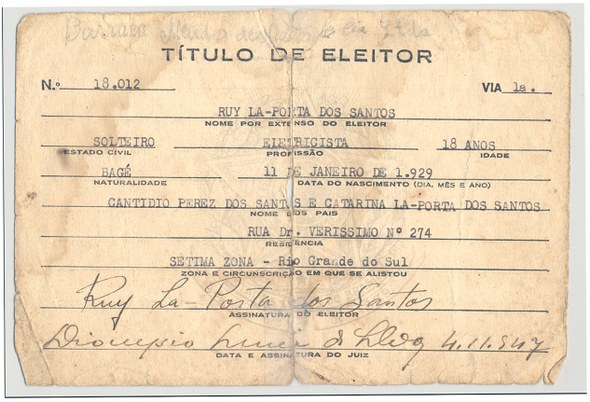 TÍTULO DE ELEITOR
N.º 18.012 VIA 1a.
RUY LA-PORTA DOS SANTOS
NOME POR EXTENSO DO ELEITOR
SOLTEIRO ELETRICISTA 18 ANOS
ESTADO CIVIL PROFISSÃO IDADE
BAGÉ 11 DE JANEIRO DE 1.929
NATURALIDADE DATA DO NASCIMENTO (DIA, MÊS E ANO)
CANTIDIO PEREZ DOS SANTOS E CATARINA LA-PORTA DOS SANTOS
NOME DOS PAIS
RUA Dr. VERISSIMO Nº 274
RESIDÊNCIA
SETIMA ZONA - Rio Grande do Sul
ZONA E CIRCUNSCRIÇÃO EM QUE SE ALISTOU
Ruy La-Porta dos Santos
ASSINATURA DO ELEITOR
4.11.947
DATA E ASSINATURA DO JUIZ